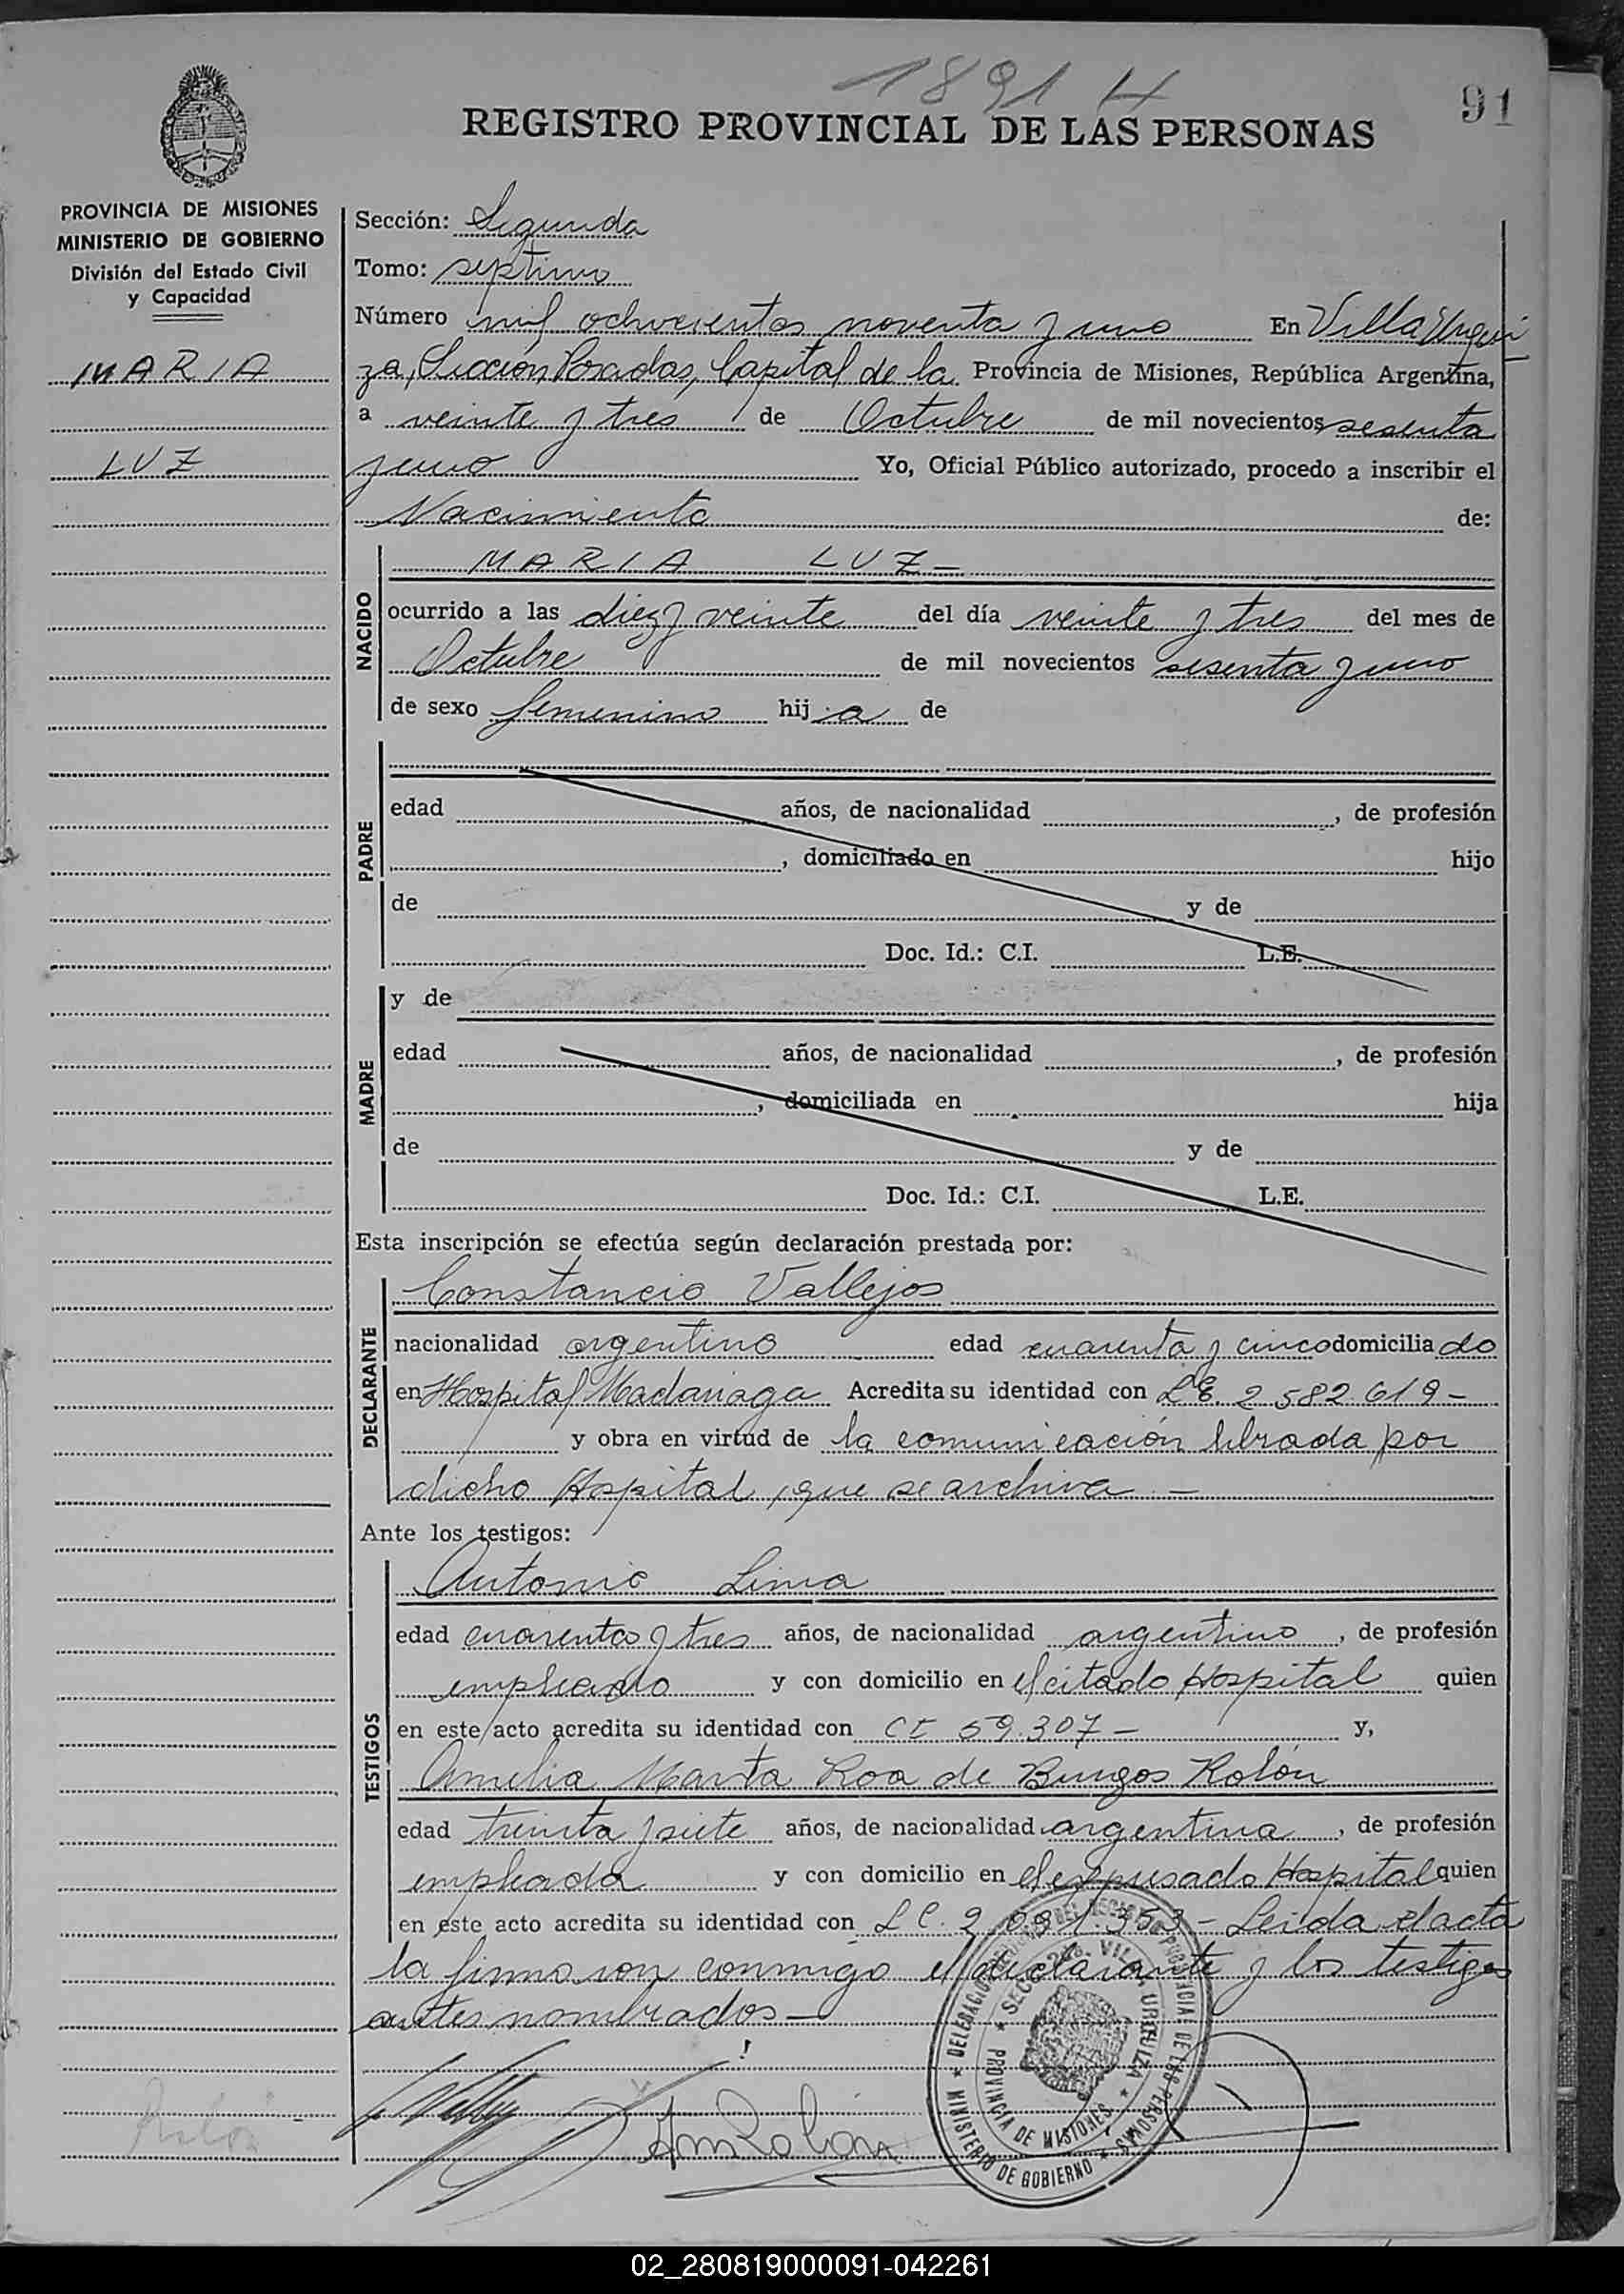 1891 H
91
REGISTRO PROVINCIAL DE LAS PERSONAS
PROVINCIA DE MISIONES
MINISTERIO DE GOBIERNO
División del Estado Civil
y Capacidad
MARIA
LUZ
Sección: Segunda
Tomo: septimo
Número mil ochocientos noventa y uno En Villa Urqui
za, Sección Posadas, Capital de la Provincia de Misiones, República Argentina,
a veinte y tres de Octubre de mil novecientos sesenta
y uno Yo, Oficial Público autorizado, procedo a inscribir el
Nacimiento de:
NACIDO
MARIA LUZ -
ocurrido a las diez y veinte del día veinte y tres del mes de
Octubre de mil novecientos sesenta y uno
de sexo femenino hij a de
PADRE
edad años, de nacionalidad , de profesión
, domiciliado en hijo
de y de
Doc. Id.: C.I. L.E.
MADRE
y de
edad años, de nacionalidad , de profesión
, domiciliada en hija
de y de
Doc. Id.: C.I. L.E.
Esta inscripción se efectúa según declaración prestada por:
DECLARANTE
Constancio Vallejos
nacionalidad argentino edad cuarenta y cinco domicilia do
en Hospital Madariaga Acredita su identidad con LE. 2.582.619 -
y obra en virtud de la comunicación librada por
dicho Hospital, que se archiva -
Ante los testigos:
TESTIGOS
Antonio Lima
edad cuarenta y tres años, de nacionalidad argentino , de profesión
empleado y con domicilio en el citado Hospital quien
en este acto acredita su identidad con CI 59.307 - y,
Amelia Marta Roa de Burgos Rolón
edad treinta y siete años, de nacionalidad argentina , de profesión
empleada y con domicilio en el expresado Hospital quien
en este acto acredita su identidad con L C. 2.091.353 - Leida el acta
la firmaron conmigo el declarante y los testigos
antes nombrados -
MINISTERIO DE GOBIERNO
PROVINCIA DE MISIONES
URQUIZA
02_280819000091-042261